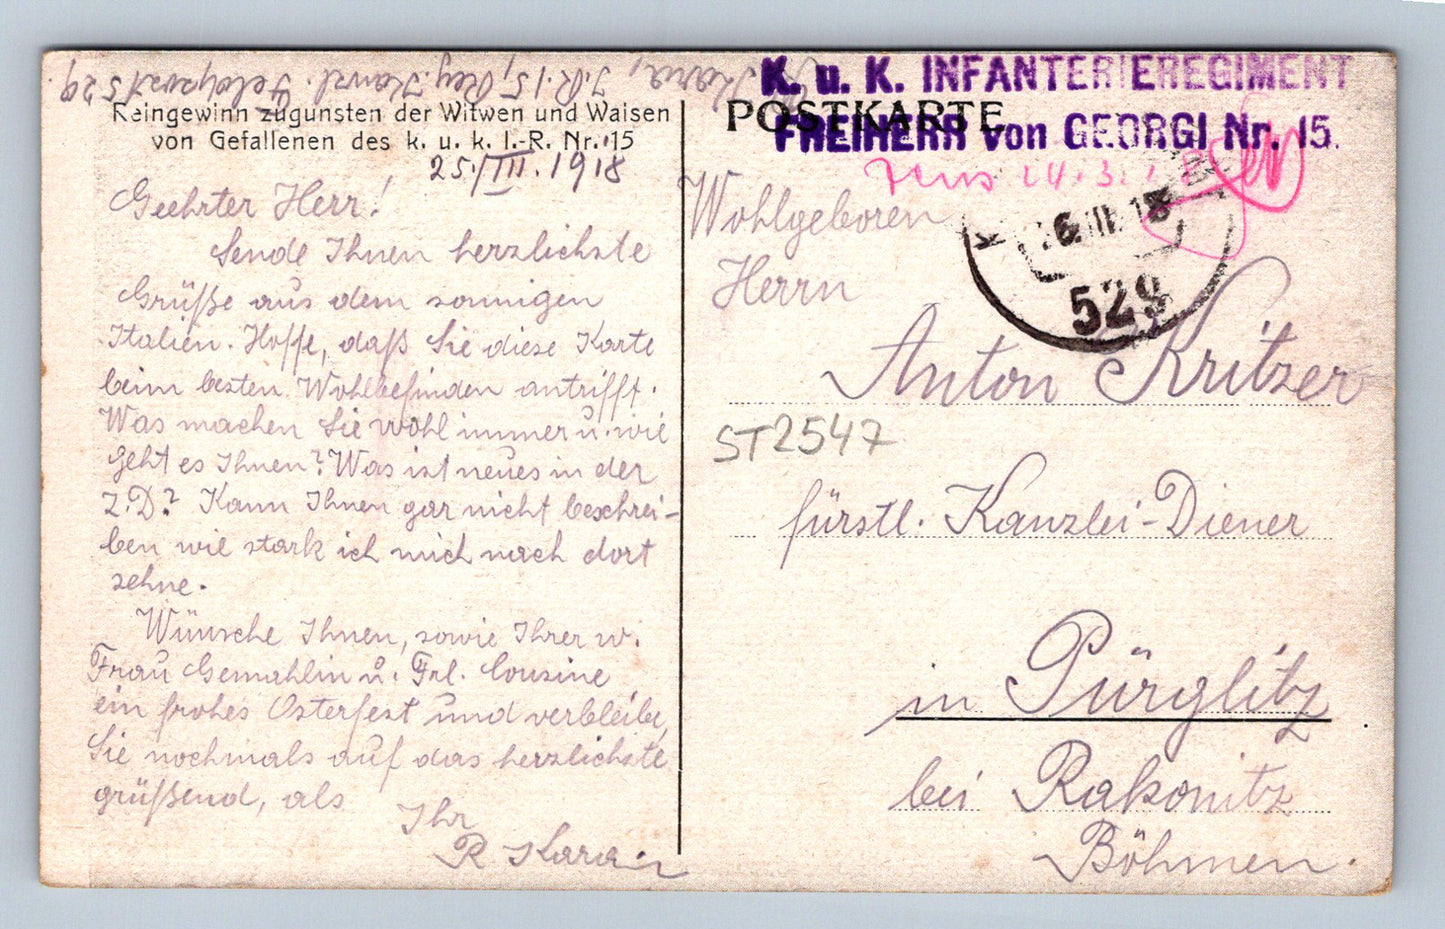 Kara, I.R.15, Reg. Kanzl. Feldpost 529
Reingewinn zugunsten der Witwen und Waisen
von Gefallenen des k. u. k. I.-R. Nr. 15
25./III. 1918
Geehrter Herr!
Sende Ihnen herzlichste
Grüße aus dem sonnigen
Italien. Hoffe, daß Sie diese Karte
beim besten Wohlbefinden antrifft.
Was machen Sie wohl immer u. wie
geht es Ihnen? Was ist neues in der
Z.D.? Kann Ihnen gar nicht beschrei-
ben wie stark ich mich nach dort
sehne.
Wünsche Ihnen, sowie Ihrer w.
Frau Gemahlin u. Frl. Cousine
ein frohes Osterfest und verbleibe,
Sie nochmals auf das herzlichste
grüßend, als
Ihr
R Kara
K. u. K. INFANTERIEREGIMENT
POSTKARTE
FREIHERR von GEORGI Nr. 15.
III. 18
529
Wohlgeboren
Herrn
Anton Kritzer
ST2547
fürstl. Kanzlei-Diener
in Pürglitz
bei Rakonitz
Böhmen.